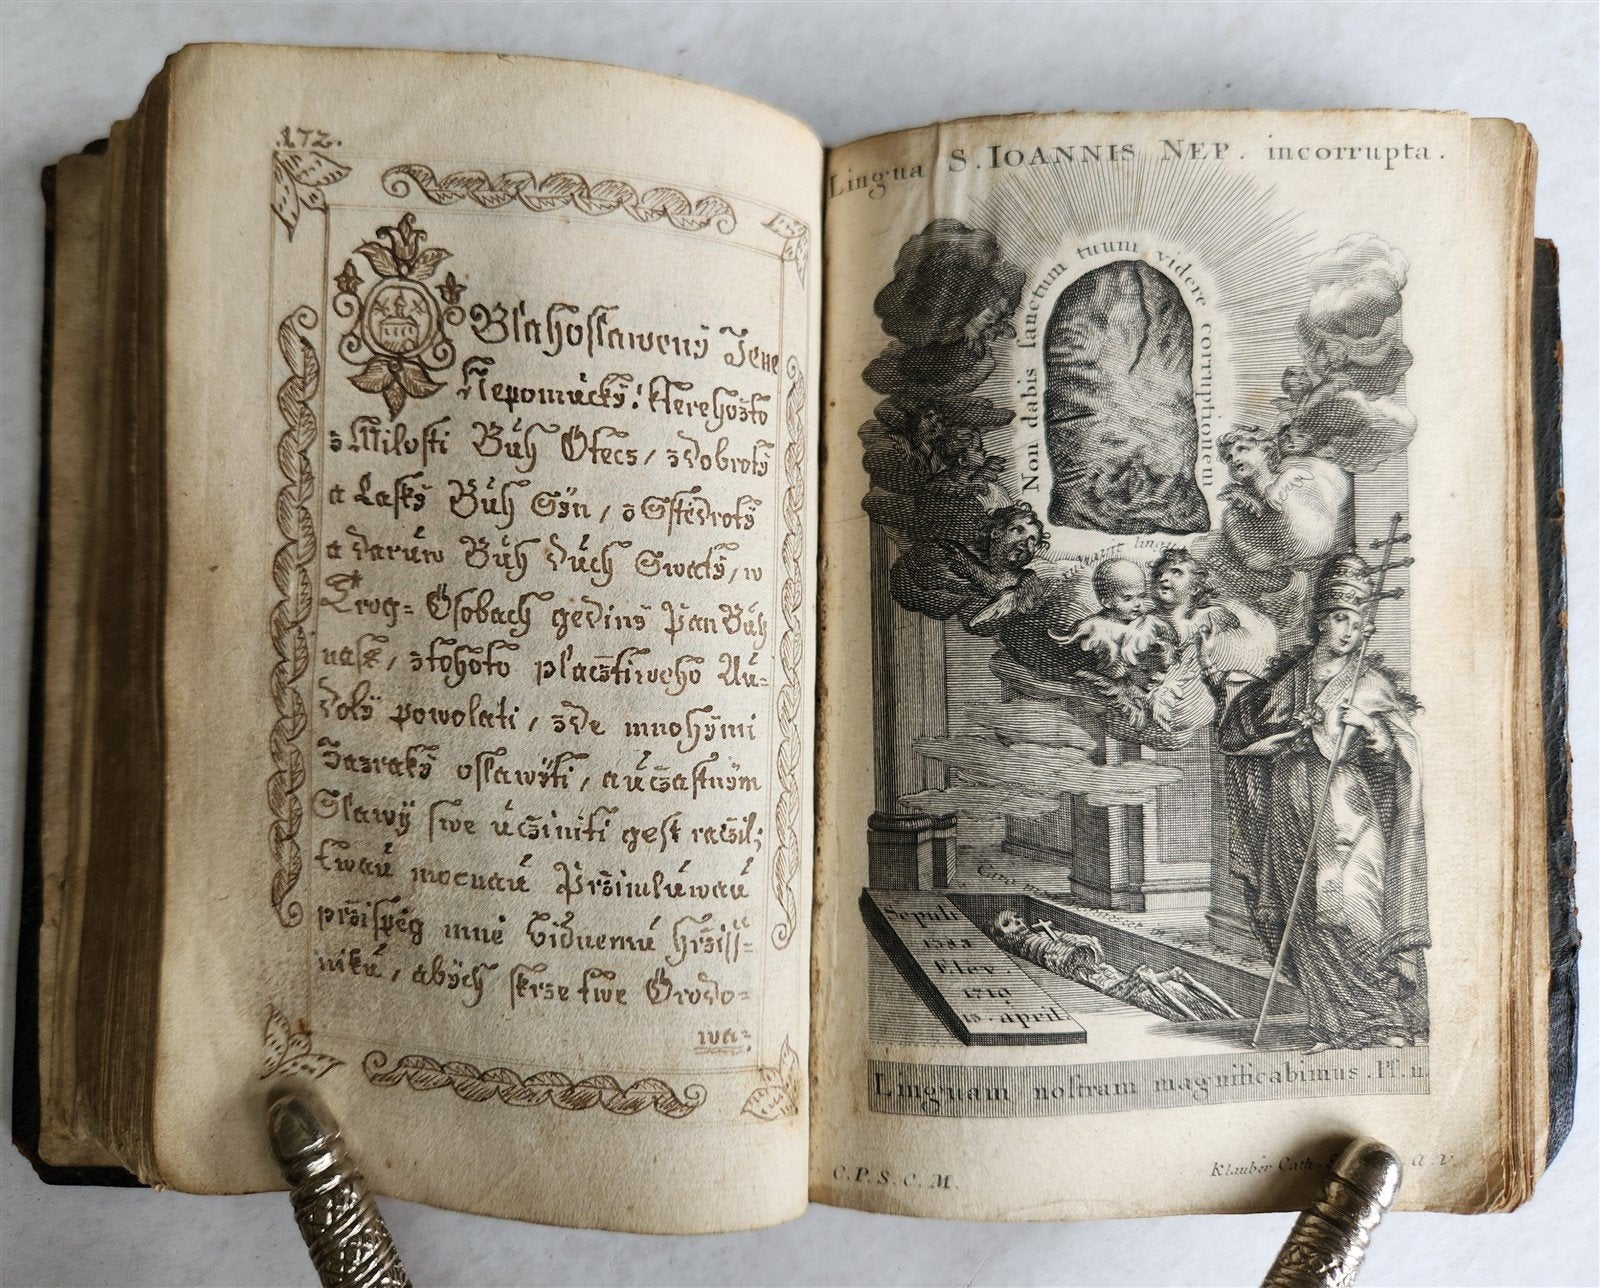 172.
Blahoslawený Jene
Nepomúcký! kterehožto
z Milosti Bůh Otecz, z dobroty
a Lasky Bůh Syn, z Sstědroty
a darúw Bůh duch Swatý, w
Trog= Osobach gediný Pan Bůh
nass, z tohoto placztiweho Au=
doly powolati, zde mnohými
Zazraky oslawiti, a učzastným
Slawy swe učziniti gest raczil;
twaú mocnaú Przimlúwaú
przispěg mně bidnemú hrziss=
nikú, abých skrze twe Orodo=
wa=
Lingua S. IOANNIS NEP. incorrupta.
Non dabis sanctum tuum videre corruptionem
Sepult.
1383
Elev.
1719
15. april.
Linguam nostram magnificabimus. Ps. 11.
C. P. S. C. M.
Klauber Cath. a. v.